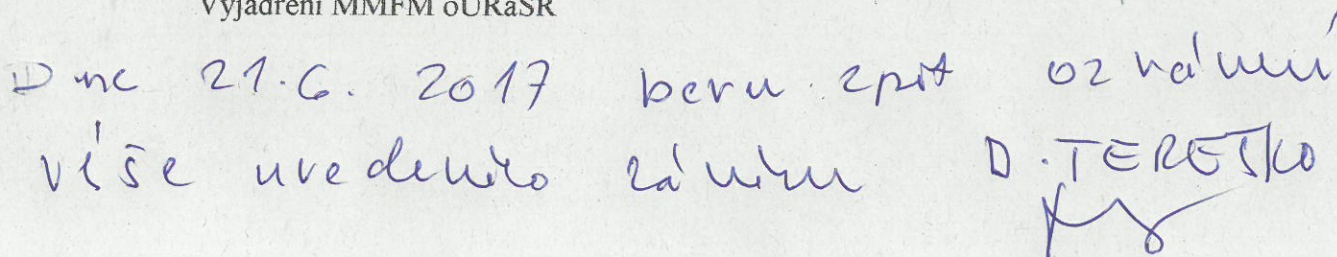 Vyjádření MMFM oÚRaSŘ
Dne 21.6. 2017 beru zpět oznámení
výše uvedeného záměru D. TEREŠKO